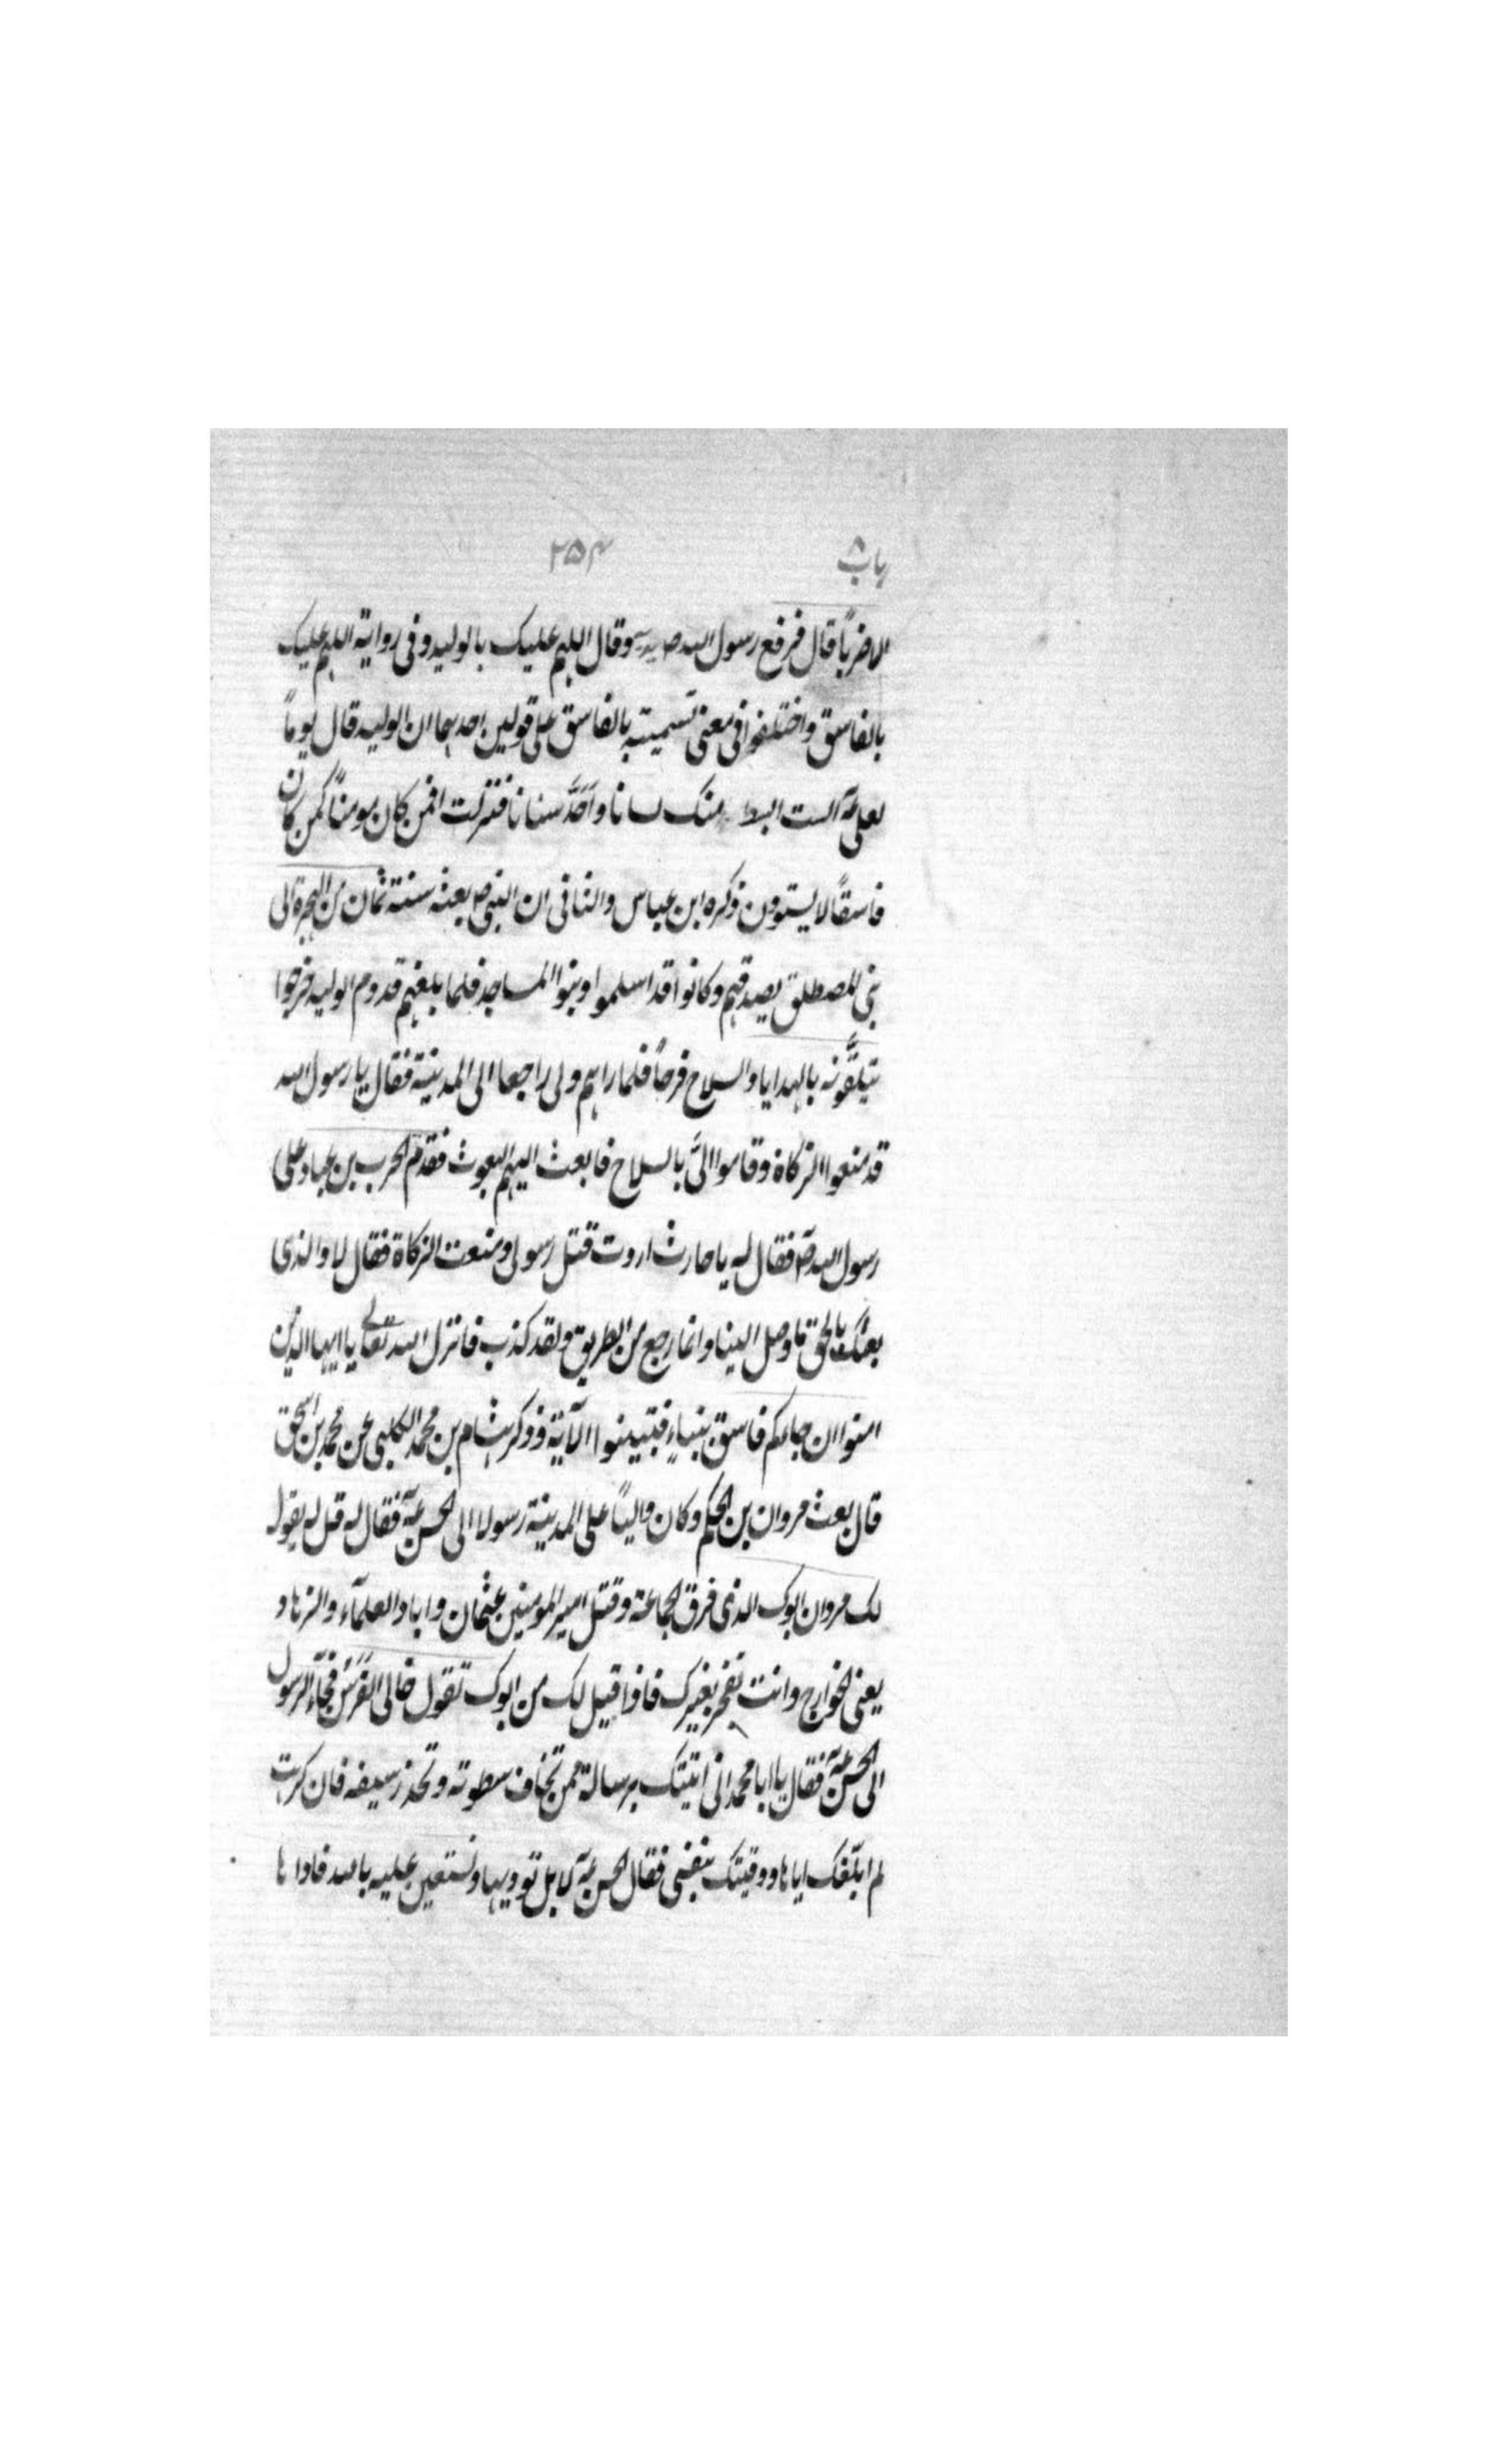 باب ۸ ۲۵۴
الا ضرباً قال فرفع رسول الله ص يديه وقال اللهم عليك بالوليد وفى رواية اللهم عليك
بالفاسق واختلفوا فى معنى تسميته بالفاسق على قولين احدهما ان الوليد قال يوماً
لعلى ع الست ابسط منك لسانا واَحَدَّ سنانا فنزلت افمن كان مومناً كمن كان
فاسقاً لا يستوون ذكره ابن عباس والثانى ان النبى ص بعثه سنة ثمان من الهجرة الى
بنى المصطلق يصدقهم وكانوا قد اسلموا وبنوا المساجد فلما بلغهم قدوم الوليد خرجوا
يتلقَّونه بالهدايا والسلاح فرحاً فلما راهم ولى راجعا الى المدينة فقال يا رسول الله
قد منعوا الزكاة وقاموا الىَّ بالسلاح فابعث اليهم البعوث فقدم الحرب بن عباد على
رسول الله ص فقال له يا حارث اردت قتل رسولى ومنعت الزكاة فقال لا والذى
بعثك بالحق ما وصل الينا وانما رجع من الطريق ولقد كذب فانزل الله تعالى يا ايها الذين
امنوا ان جاءكم فاسق بنباءٍ فتبينوا الآية وذكر هشام بن محمد الكلبى عن محمد بن اسحق
قال بعث مروان بن الحكم وكان والياً على المدينة رسولا الى الحسن ع فقال له قل له يقول
لك مروان ابوك الذى فرق الجماعة وقتل امير المومنين عثمان واباد العلمآء والزهاد
يعنى الخوارج وانت تفخر بغيرك فاذا قيل لك من ابوك تقول خالى الفرس فجآء الرسول
الى الحسن ع فقال يا ابا محمد انى اتيتك برسالة ممن تخاف سطوته وتحذر سيفه فان كرهت
لم ابلّغك اياها ووقيتك بنفسى فقال الحسن ع لا بل تؤديها ونستعين عليه بالله فاداها